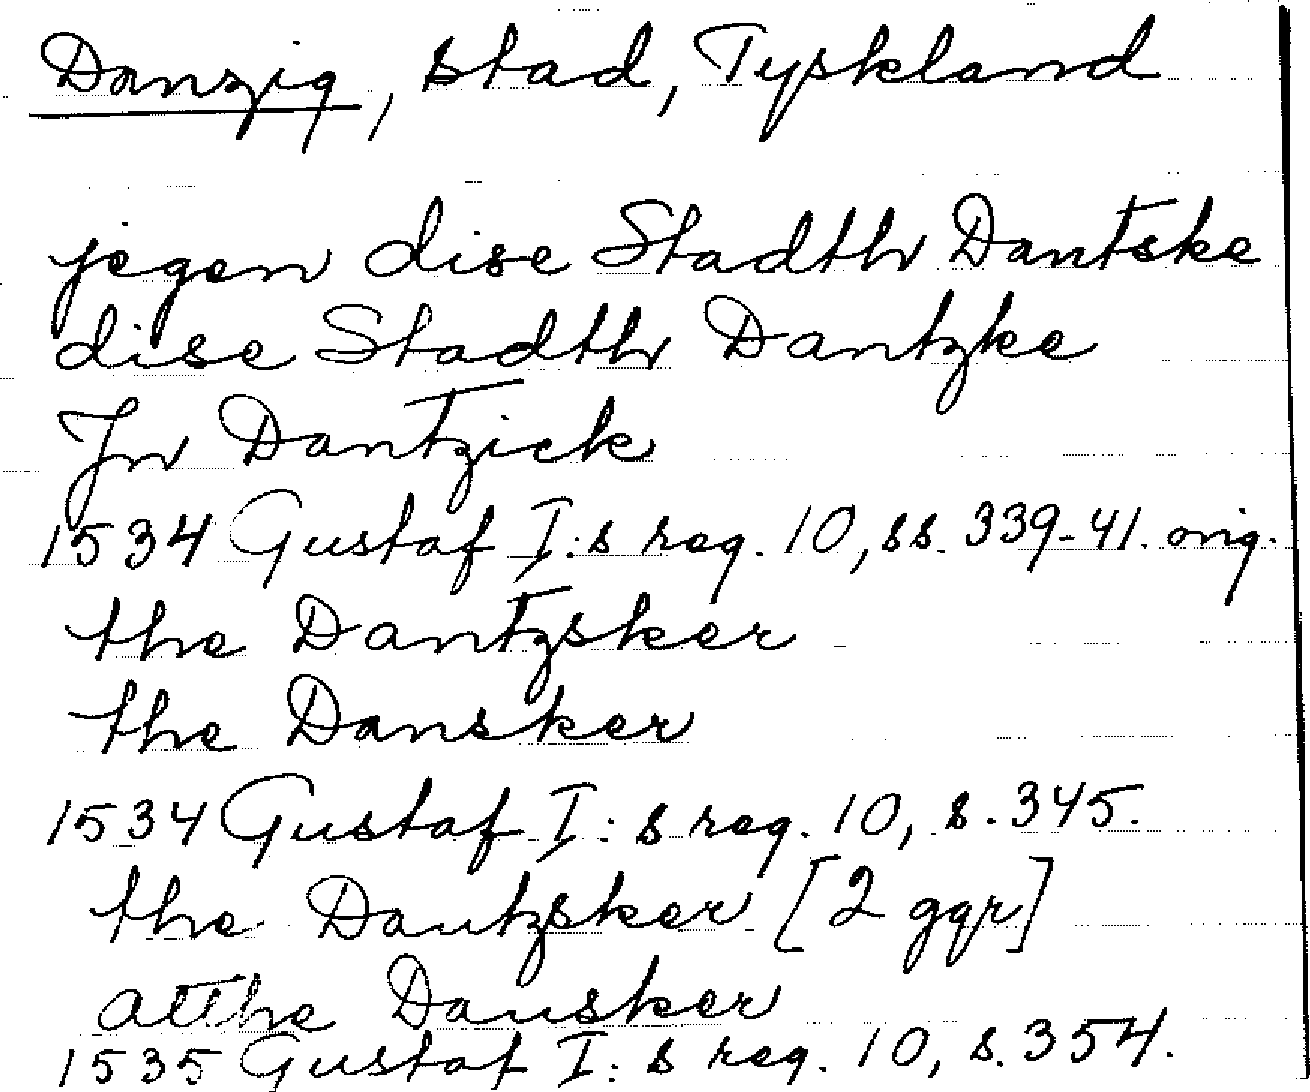 Danzig, stad, Tyskland
jegen dise Stadth Dantske
dise Stadth Dantzke
Jn Dantzick
1534 Gustaf I:s reg. 10, ss. 339-41. orig.
the Dantzsker
the Dansker
1534 Gustaf I:s reg. 10, s. 345.
the Dantzsker [2 ggr]
atthe Dansker
1535 Gustaf I:s reg. 10, s. 354.